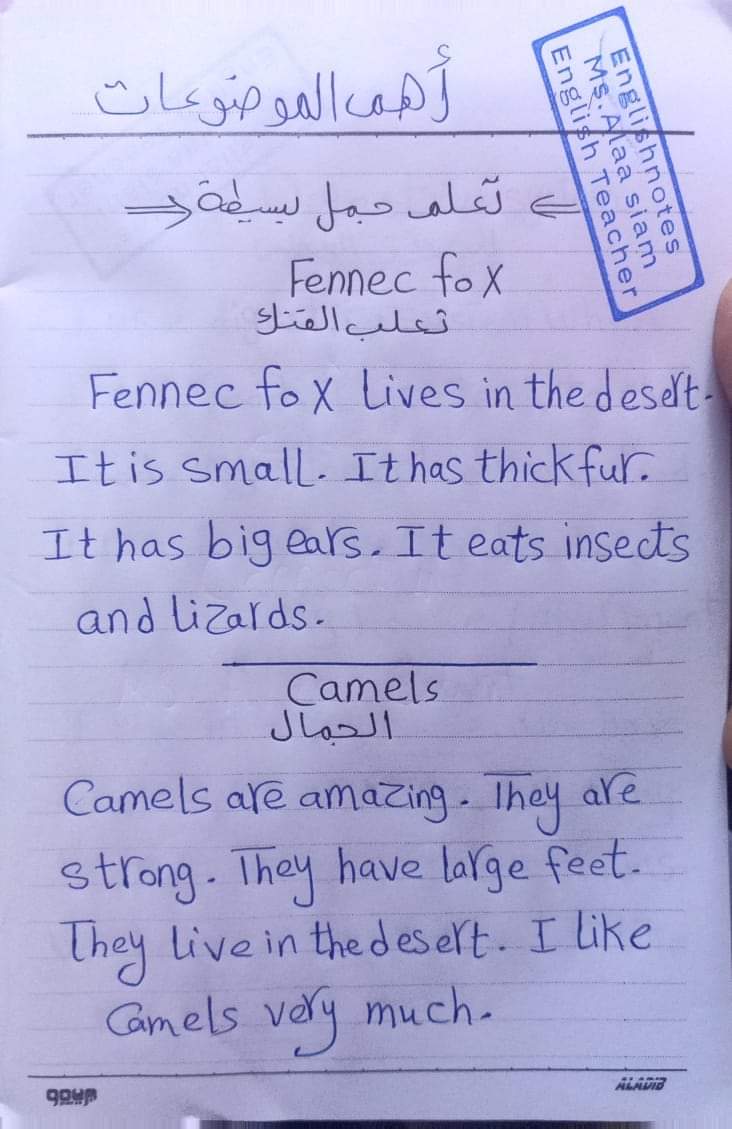 أهم الموضوعات
Englishnotes
Ms. Alaa siam
English Teacher
⇐ تعلم جمل بسيطة ⇒
Fennec fox
ثعلب الفنك
Fennec fox lives in the desert.
It is small. It has thick fur.
It has big ears. It eats insects
and lizards.
Camels
الجمال
Camels are amazing. They are
strong. They have large feet.
They live in the desert. I like
Camels very much.